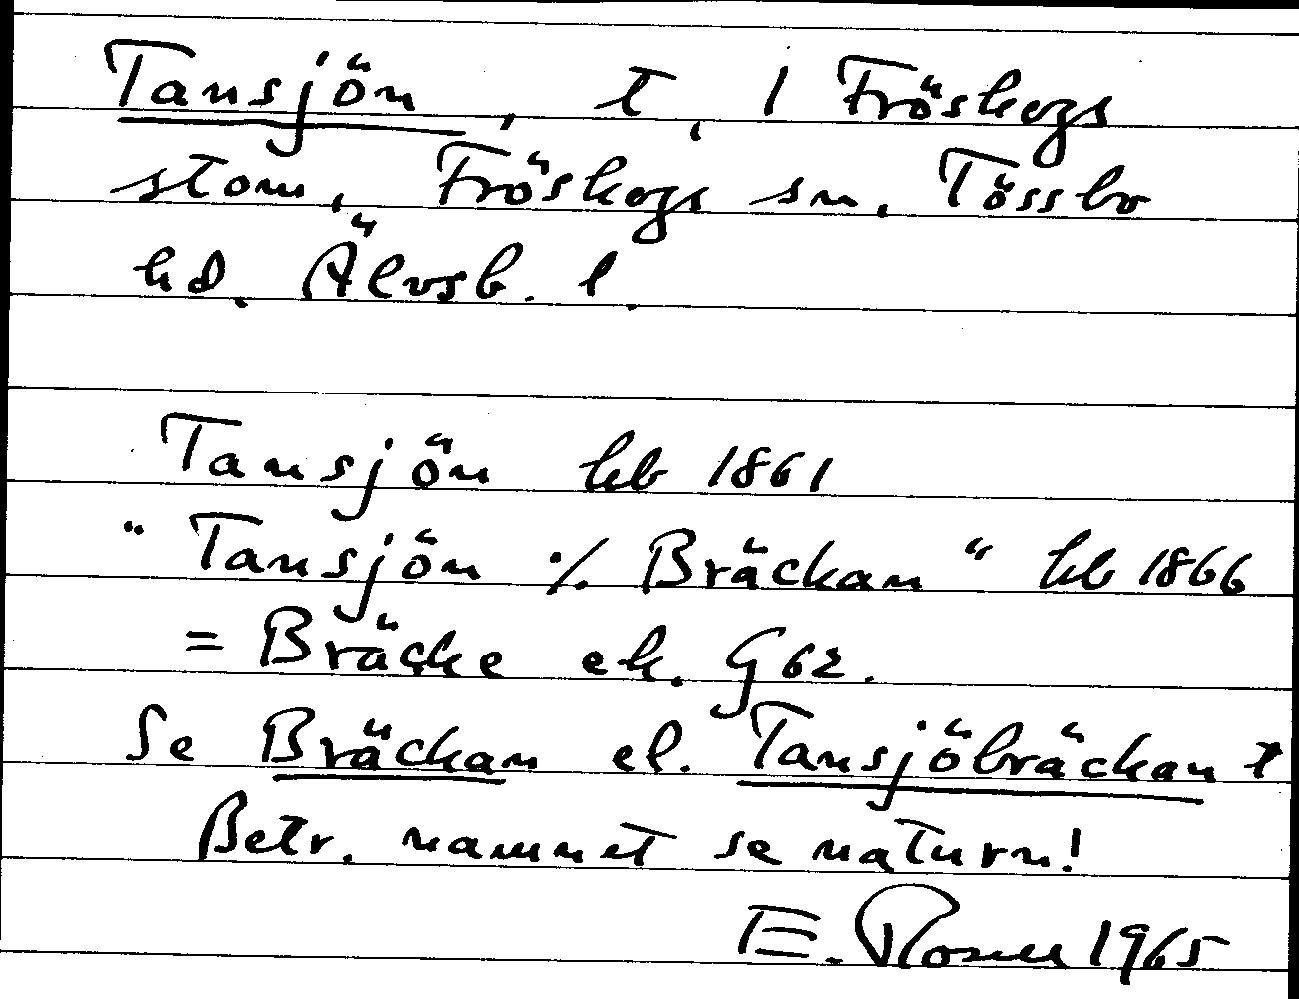 Tansjön, t, 1 Fröskogs
stom, Fröskogs sn, Tössbo
hd. Älvsb. l.
Tansjön hb 1861
"Tansjön ·/. Bräckan" hb 1866
= Bräcke ek. G 62.
Se Bräckan el. Tansjöbräckan t
Betr. namnet se naturn!
E. Rosell 1965